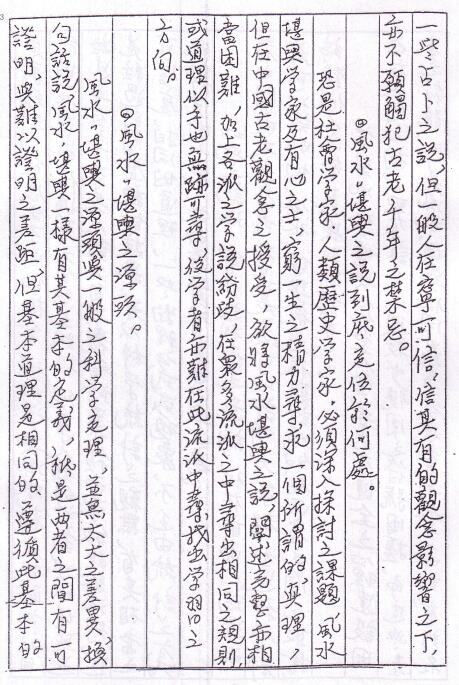 一些占卜之說，但一般人在寧可信，信其有的觀念影響之下，
亦不願觸犯古老千年之禁忌。
◎風水。堪輿之說到底定位於何處。
恐是社會学家、人類歷史学家。必須深入探討之課題，風水
堪輿学家及有心之士，窮一生之精力尋求一個所謂的真理，
但在中國古老觀念之授受，欲將風水堪輿之說，闡述完整亦相
當困難，加上各派之学說紛歧，在衆多流派之中尋出相同之規則，
或道理似乎也無跡可尋，後学者亦難在此流派中尋找出学習之
方向。
◎風水。堪輿之源頭。
風水。堪輿之源頭與一般之科学定理，並無太大之差異，換
句話說，風水，堪輿一樣有其基本的定義，就是兩者之間有可
證明，與難以證明之差距，但基本道理是相同的，遵循此基本的
3